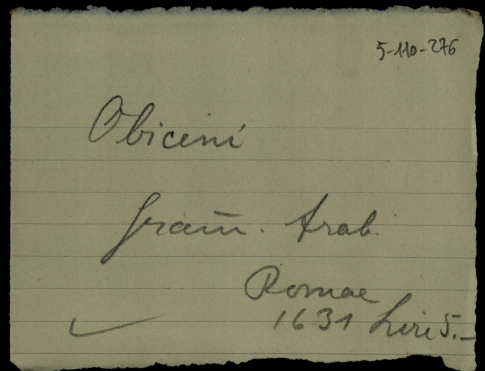 5-110-276
Obicini
Gram̄. Arab.
Romae
1631 Lire 5.—